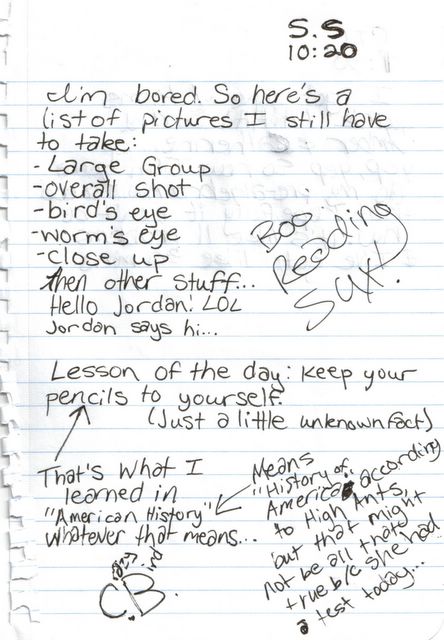 S.S
10:20
I'm bored. So here's a
list of pictures I still have
to take:
-Large Group
-overall shot
-bird's eye
-worm's eye
-close up
then other stuff...
Hello Jordan! LOL
Jordan says hi...
Boo
Reading
Sux!
Lesson of the day: keep your
pencils to yourself.
(Just a little unknown fact)
That's what I
learned in
"American History"
whatever that means...
Means
"History of
America" according
to High Ants,
but that might
not be all that
true b/c she had
a test today...
C.B.